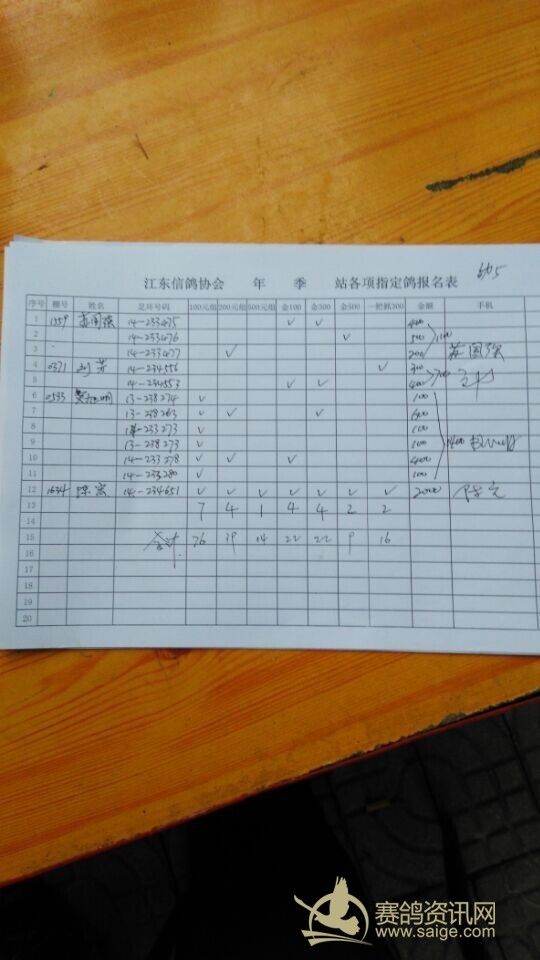 江东信鸽协会 年 季 站各项指定鸽报名表
序号 棚号 姓名 足环号码 100元组 200元组 500元组 金100 金300 金500 一把抓300 金额 手机
1 1359 苏国强 14-233475 ✓ ✓ 400
2 14-233476 ✓ 500
3 14-233477 ✓ 200 苏国强
4 0371 刘芳 14-234556 ✓ 300
5 14-234553 ✓ ✓ 400
6 0533 13-238274 ✓ 100
7 13-238263 ✓ ✓ ✓ 600
8 14-233273 ✓ 100
9 13-238273 ✓ 100 1400
10 14-233278 ✓ ✓ ✓ 400
11 14-233280 ✓ 100
12 1634 陈宏 14-234651 ✓ ✓ ✓ ✓ ✓ ✓ ✓ 2000
13 7 4 1 4 4 2 2
14
15 合计 76 39 14 22 22 9 16
16
17
18
19
20
赛鸽资讯网
www.saige.com